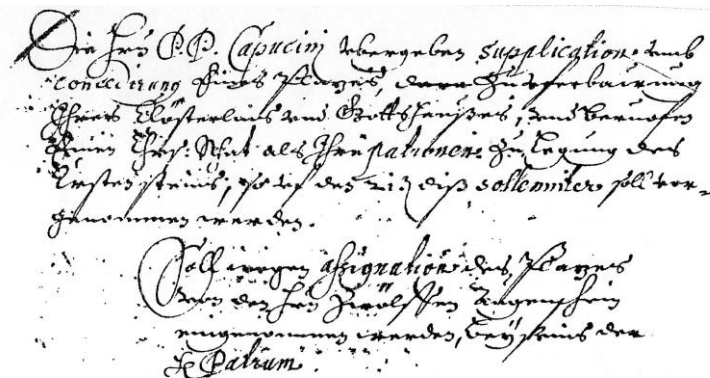 Die Hrn P.P. Capucini übergeben supplication umb
concedirung Eines Plazes, dero Zu erbauung
Ihres Clösterlins und Gottshaußes, und beruofen
Einen Ehrs: Rhat als Ihre patronen Zu Legung des
Ersten steins, so uf den diß solemniter soll vor-
genommen werden.
Soll wegen assignation des Plazes
von den Hrn Zwölffen Augenschein
eingenommen werden, beyseins der
Patrum